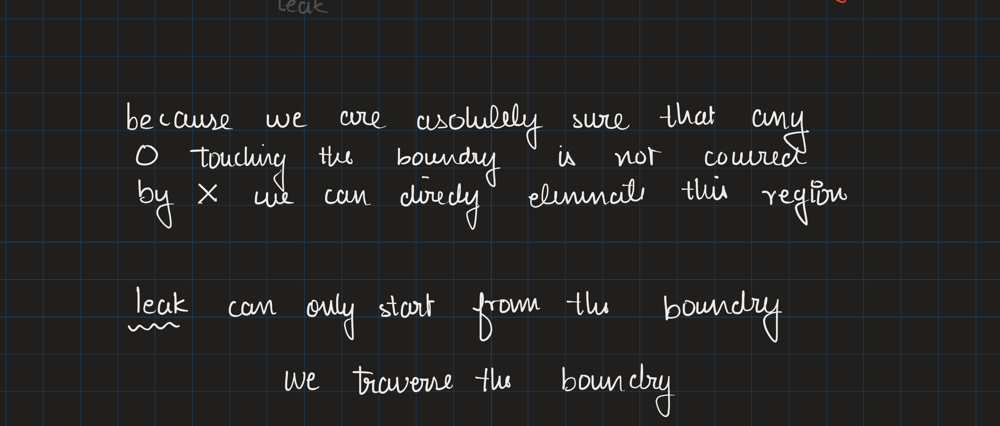 leak
because we are asolutely sure that any
O touching the boundry is not covered
by X we can direcly eliminate this region
leak can only start from the boundry
we traverse the boundry